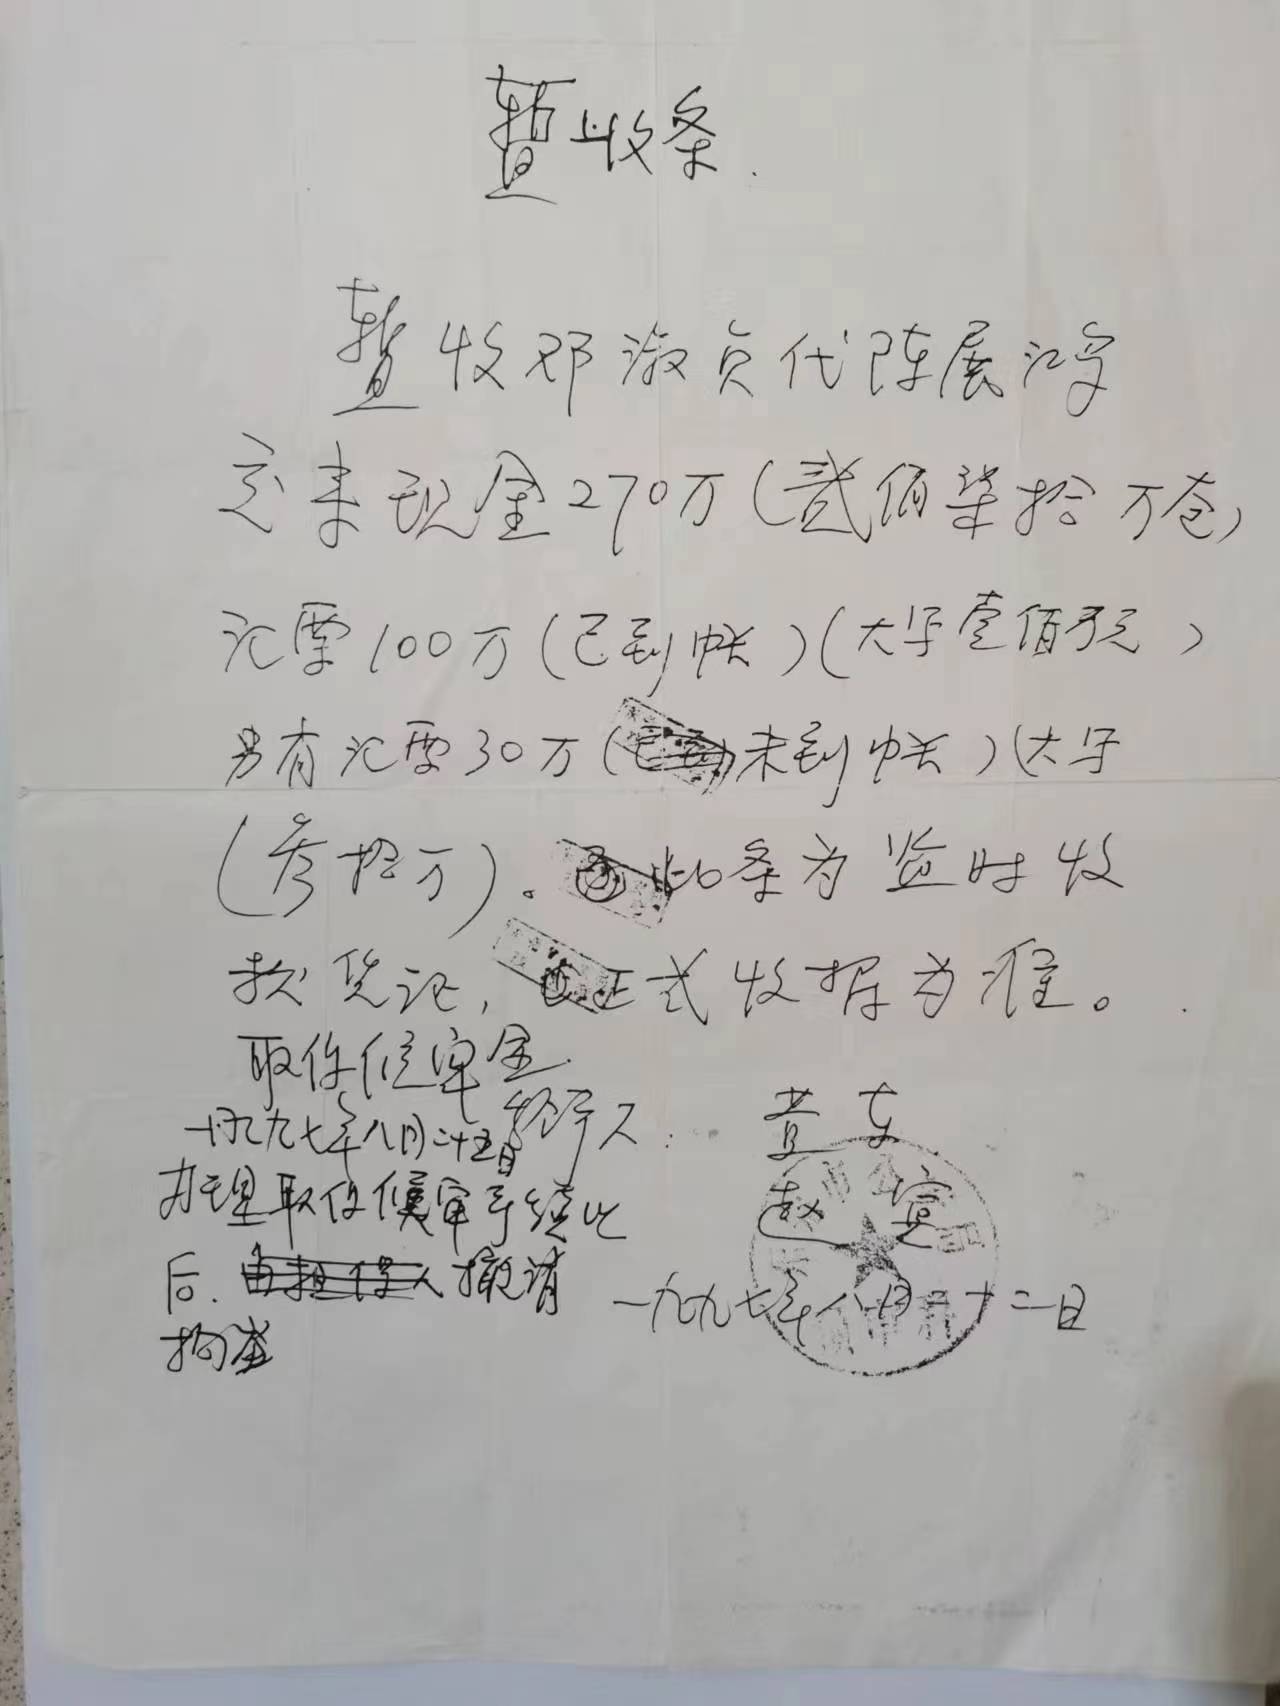 暂收条.
暂收邓淑贞代陈展鸿
交来现金270万(贰佰柒拾万仓)
汇票100万(已到帐)(大写壹佰万元)
另有汇票30万(未到帐)(大写
(叁拾万)。此条为监时收
款凭记,正式收据为准。
取保候审金
经手人: 黄东
一九九七年八月二十五日
赵
办理取保候审手续此
后. 撤请
一九九七年八月二十二日
拘